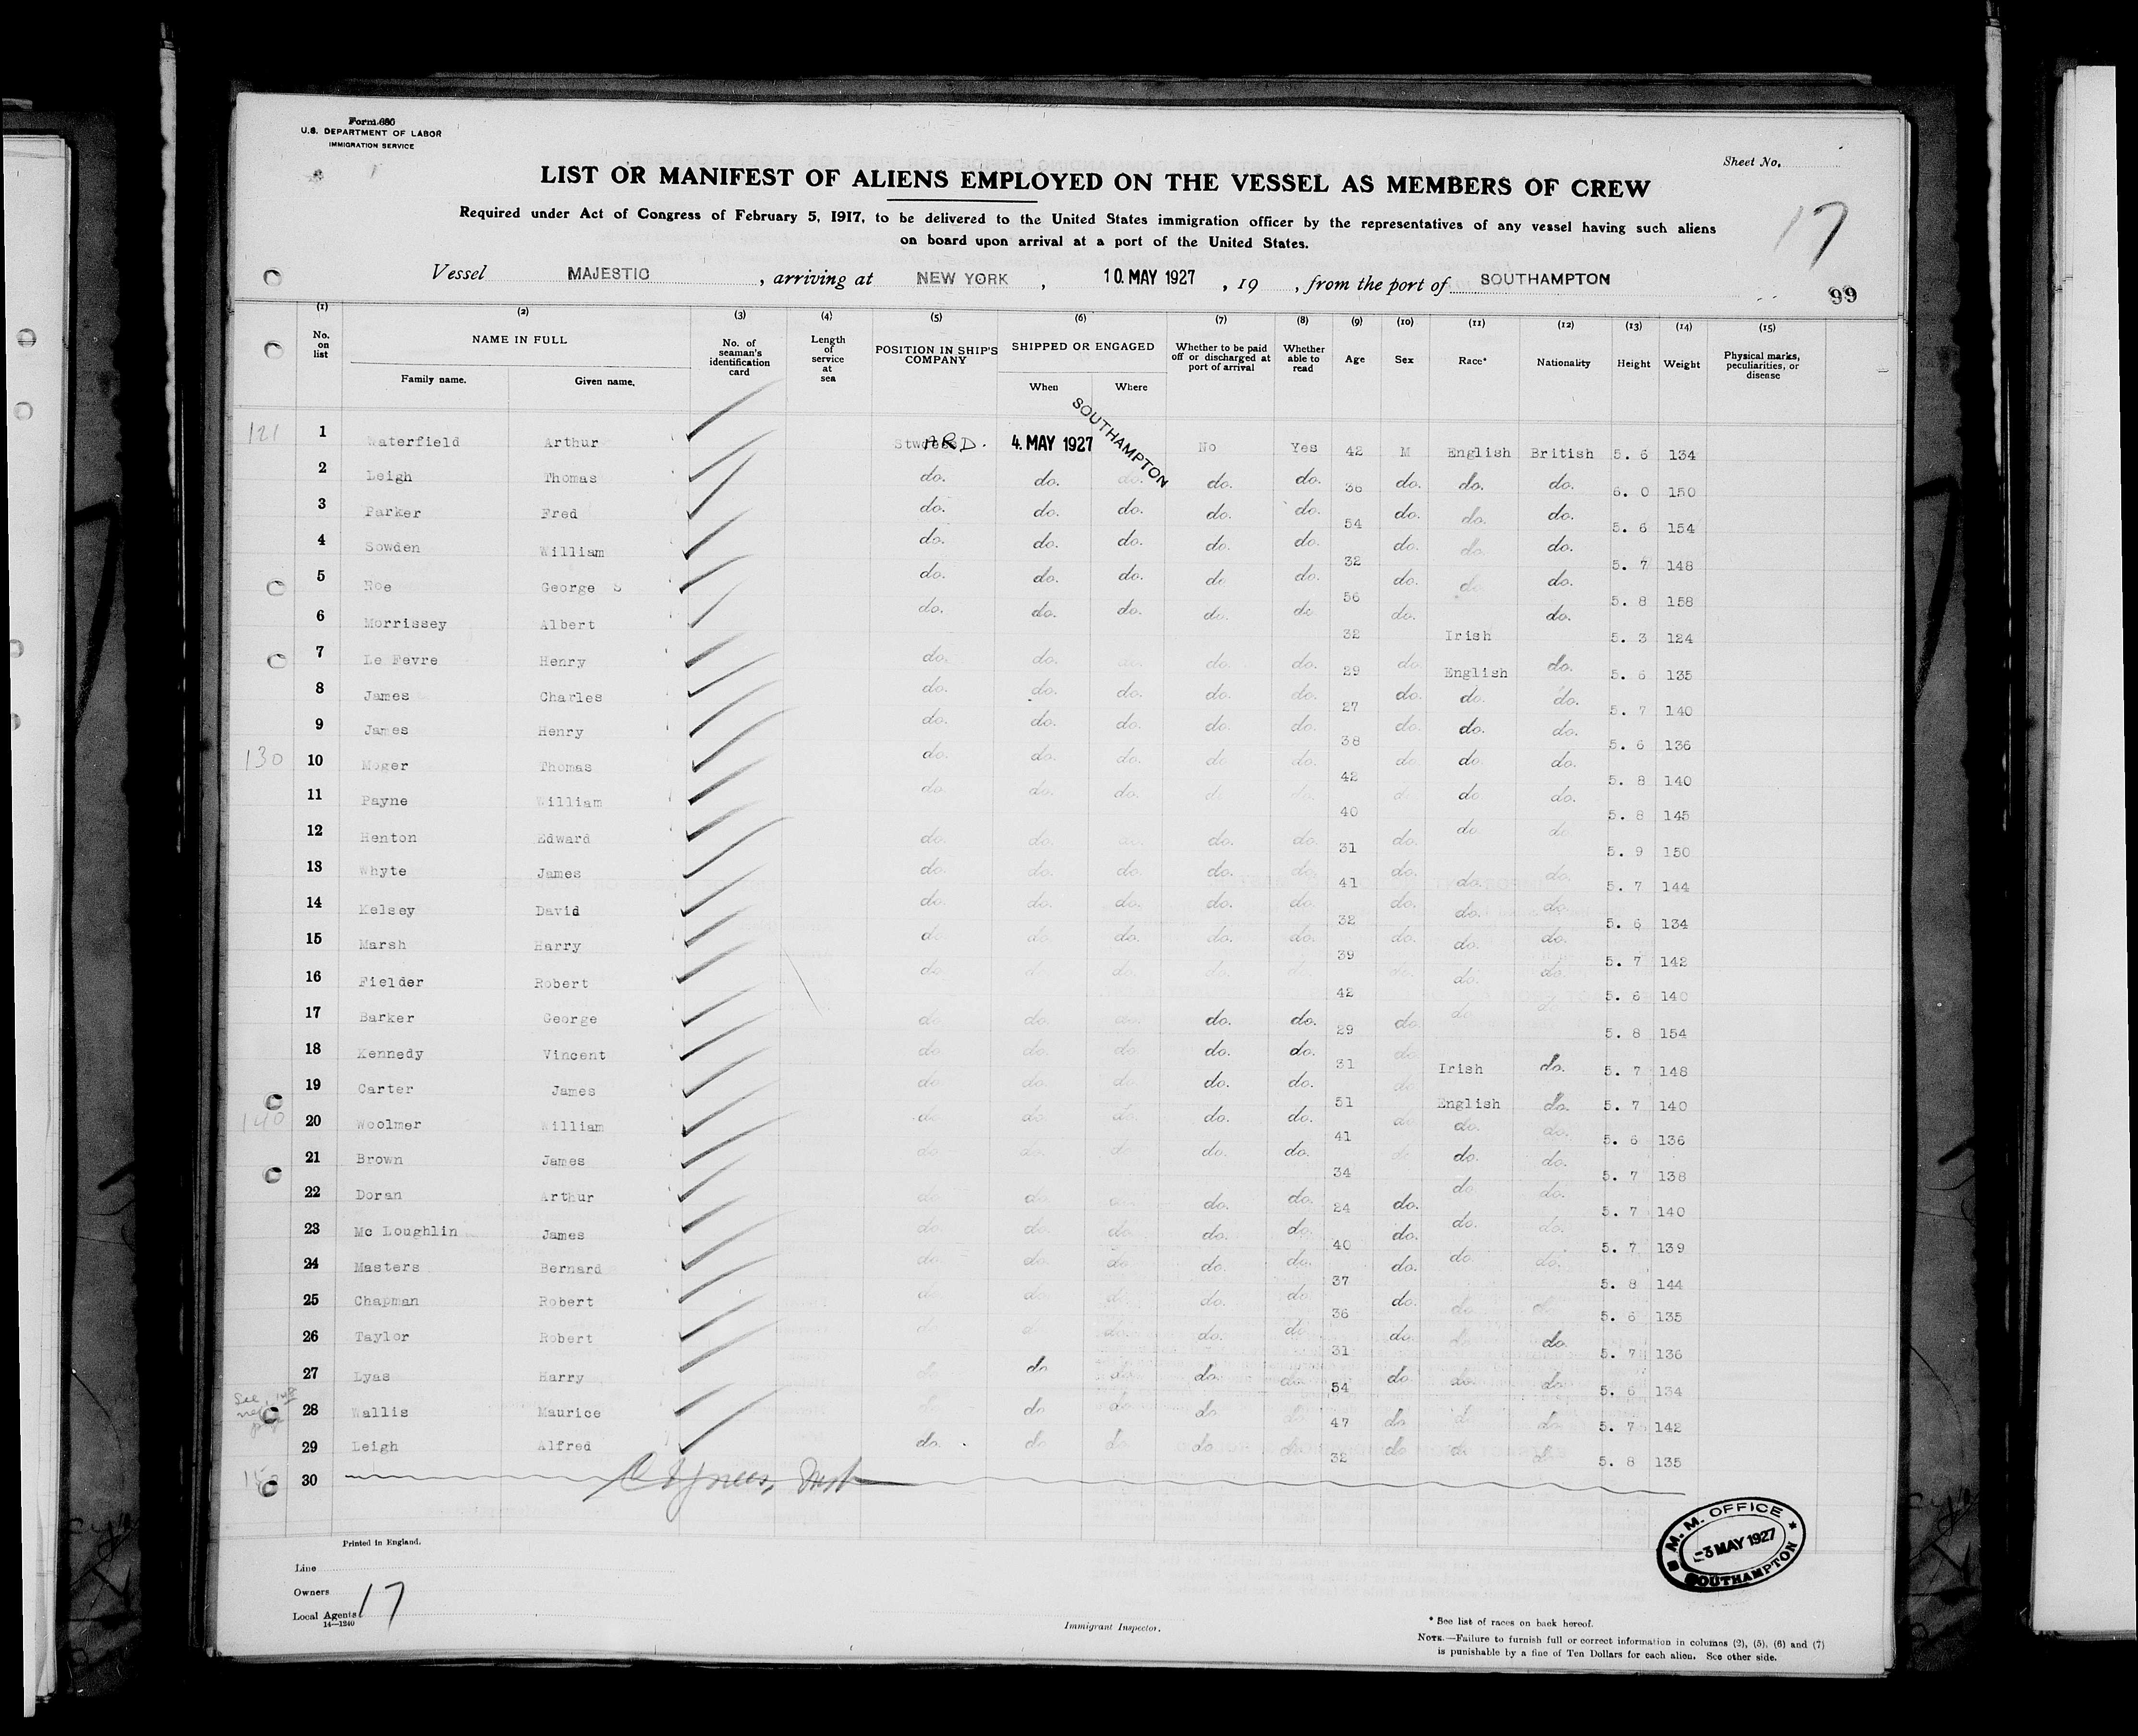 Form 686
U.S. DEPARTMENT OF LABOR
IMMIGRATION SERVICE
Sheet No.
LIST OR MANIFEST OF ALIENS EMPLOYED ON THE VESSEL AS MEMBERS OF CREW
Required under Act of Congress of February 5, 1917, to be delivered to the United States immigration officer by the representatives of any vessel having such aliens
on board upon arrival at a port of the United States.
17
Vessel MAJESTIC , arriving at NEW YORK , 10 MAY 1927 , 19 , from the port of SOUTHAMPTON
99
(1) (2) (3) (4) (5) (6) (7) (8) (9) (10) (11) (12) (13) (14) (15)
No. on list NAME IN FULL Family name. Given name. No. of seaman's identification card Length of service at sea POSITION IN SHIP'S COMPANY SHIPPED OR ENGAGED When Where Whether to be paid off or discharged at port of arrival Whether able to read Age Sex Race* Nationality Height Weight Physical marks, peculiarities, or disease
121 1 Waterfield Arthur 4 MAY 1927 SOUTHAMPTON No Yes 42 M English British 5. 6 134
2 Leigh Thomas do. do. do. do. do. 36 do. do. do. 6. 0 150
3 Parker Fred do. do. do. do. do. 54 do. do. do. 5. 6 154
4 Sowden William do. do. do. do. do. 32 do. do. do. 5. 7 148
5 Noe George S do. do. do. do do. 56 do. do. do. 5. 8 158
6 Morrissey Albert do. do. do. do. do 32 do. Irish do. 5. 3 124
7 Le Fevre Henry do. do. do. do. do. 29 do. English do. 5. 6 135
8 James Charles do. do. do. do. do. 27 do. do. do. 5. 7 140
9 James Henry do. do. do. do. do. 38 do. do. do. 5. 6 136
130 10 Moger Thomas do. do. do. do do. 42 do. do. do. 5. 8 140
11 Payne William do. do. do. do. do. 40 do. do do. 5. 8 145
12 Henton Edward do. do. do. do. do. 31 do. do. do 5. 9 150
13 Whyte James do. do. do. do. do. 41 do. do. do. 5. 7 144
14 Kelsey David do. do. do. do. do. 32 do. do. do. 5. 6 134
15 Marsh Harry do. do. do. do. do. 39 do. do. do. 5. 7 142
16 Fielder Robert do do. do. do. do. 42 do. do. do. 5. 6 140
17 Barker George do do. do. do. do. 29 do. do. do. 5. 8 154
18 Kennedy Vincent do do. do do. do. 31 do Irish do. 5. 7 148
19 Carter James do do. do do. do. 51 do English do. 5. 7 140
140 20 Woolmer William do. do. do. do. do. 41 do do. do. 5. 6 136
21 Brown James do do. do do. do. 34 do. do. do. 5. 7 138
22 Doran Arthur do do. do. do. do. 24 do. do do. 5. 7 140
23 Mc Loughlin James do. do. do. do. do. 40 do. do. do. 5. 7 139
24 Masters Bernard do. do. do do. do. 37 do. do. do. 5. 8 144
25 Chapman Robert do. do. do. do. do 36 do. do do 5. 6 135
26 Taylor Robert do. do. do. do. do 31 do. do. do. 5. 7 136
27 Lyas Harry do. do do. do. do. 54 do. do. do. 5. 6 134
See next page
28 Wallis Maurice do. do do. do. do. 47 do. do. do. 5. 7 142
29 Leigh Alfred do. do do. do. do. 32 do do. do. 5. 8 135
30
M. M. OFFICE
3 MAY 1927
SOUTHAMPTON
Printed in England.
Line
Owners
Local Agents 17
14—1240
Immigrant Inspector.
* See list of races on back hereof.
NOTE.—Failure to furnish full or correct information in columns (2), (5), (6) and (7)
is punishable by a fine of Ten Dollars for each alien. See other side.